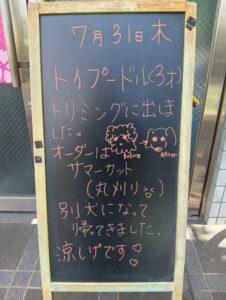 7月31日木
トイプードル(3才)
トリミングに出しま
した。
オーダーは
サマーカット
(丸刈り)
別犬になって
帰ってきました。
涼しげです♡